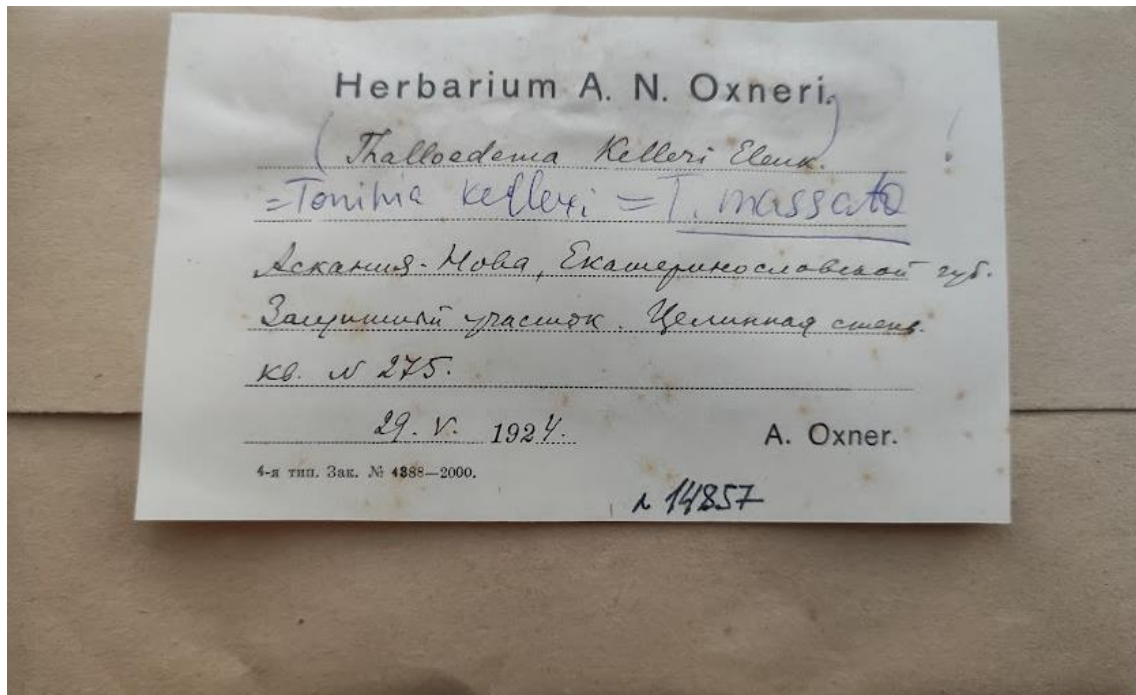 Herbarium A. N. Oxneri.
( Thalloedema Kelleri Elenk. ) !
= Toninia kelleri = T. massata
Аскания-Нова, Екатеринославской губ.
Защитный участок. Целинная степь.
кв. N 275.
29. V. 1924.
A. Oxner.
4-я тип. Зак. № 4388—2000.
14857